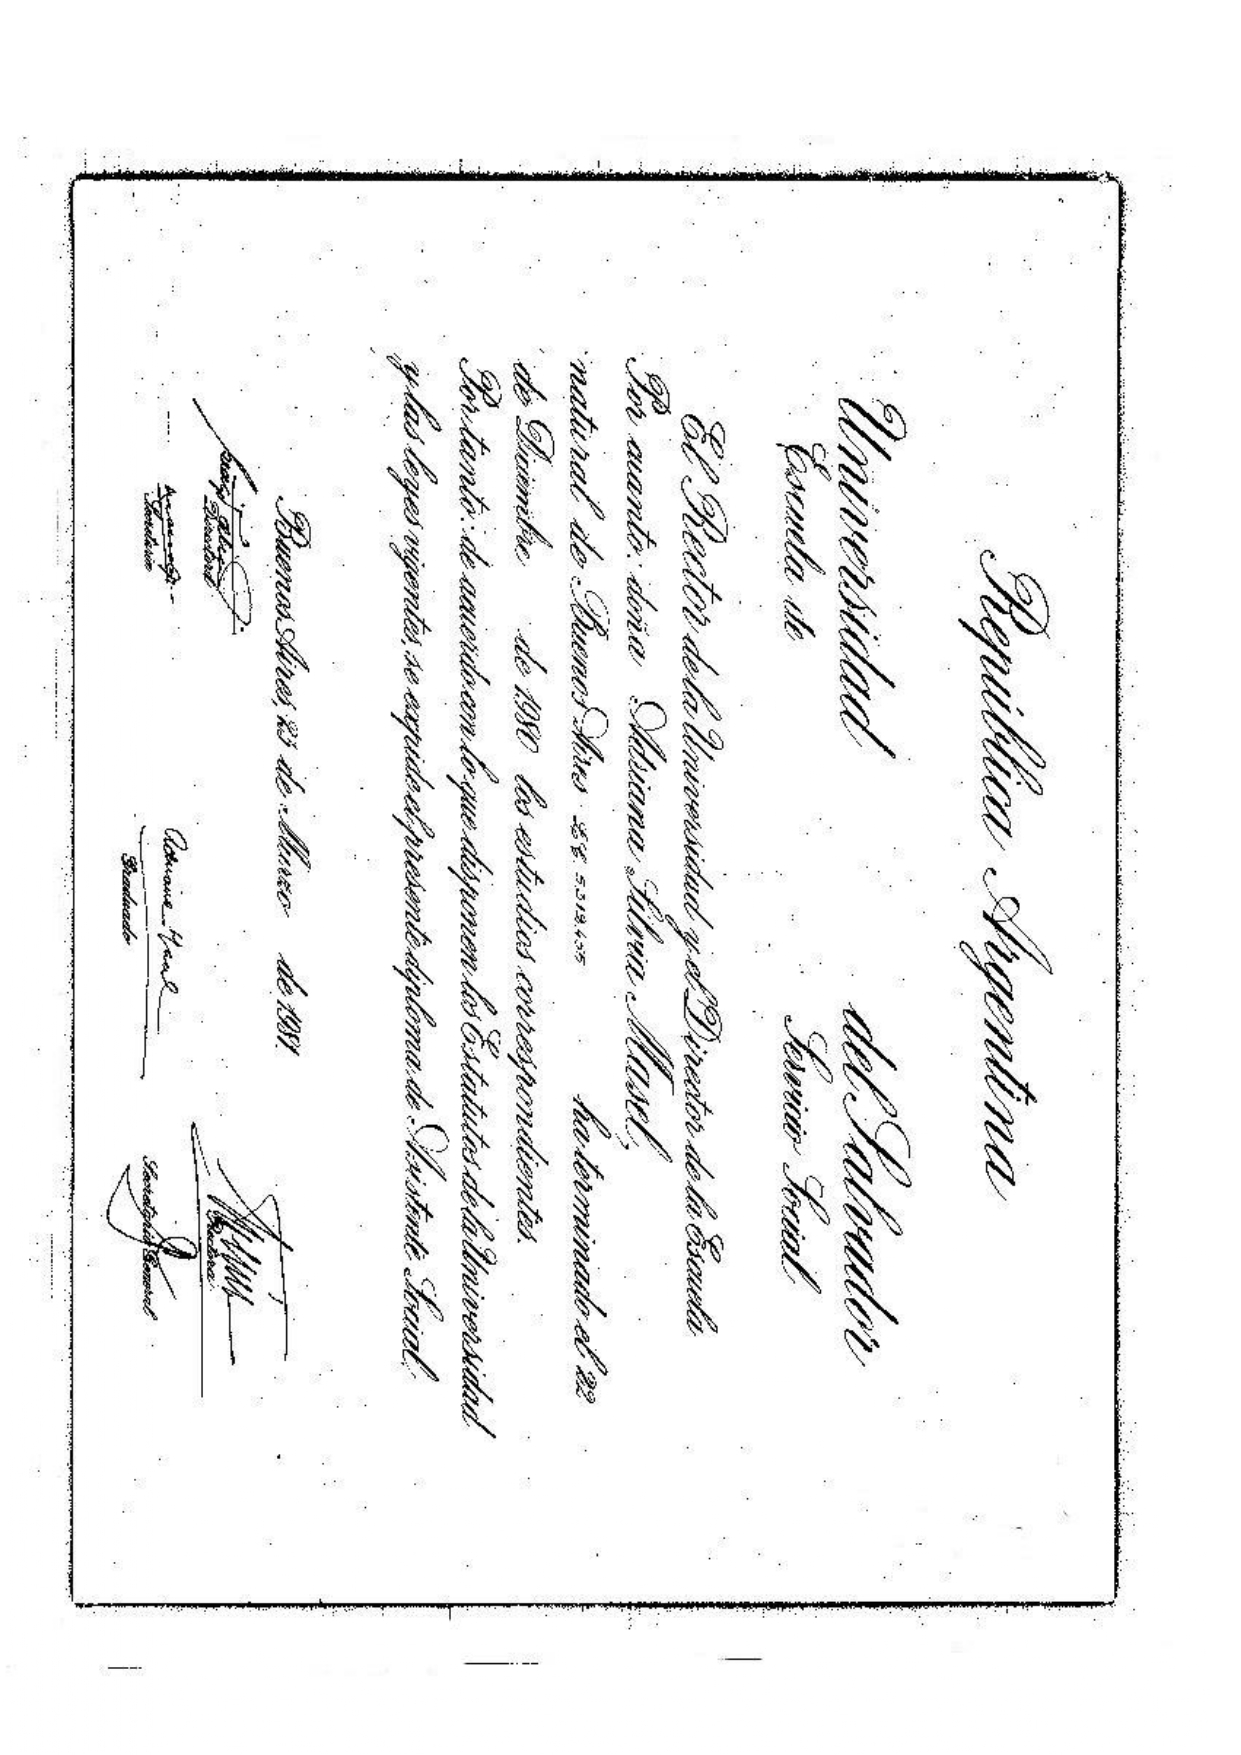 República Argentina
Universidad del Salvador
Escuela de Servicio Social
El Rector de la Universidad y el Director de la Escuela
Por cuanto: doña Adriana Silvia Masel,
natural de Buenos Aires ha terminado el 22
de Diciembre de 1980 los estudios correspondientes.
Por tanto: de acuerdo con lo que disponen los Estatutos de la Universidad
y las leyes vigentes, se expide el presente diploma de Asistente Social.
Buenos Aires, 23 de Marzo de 1981.
Directora
Secretaria
Graduado
Rectora
Secretario General